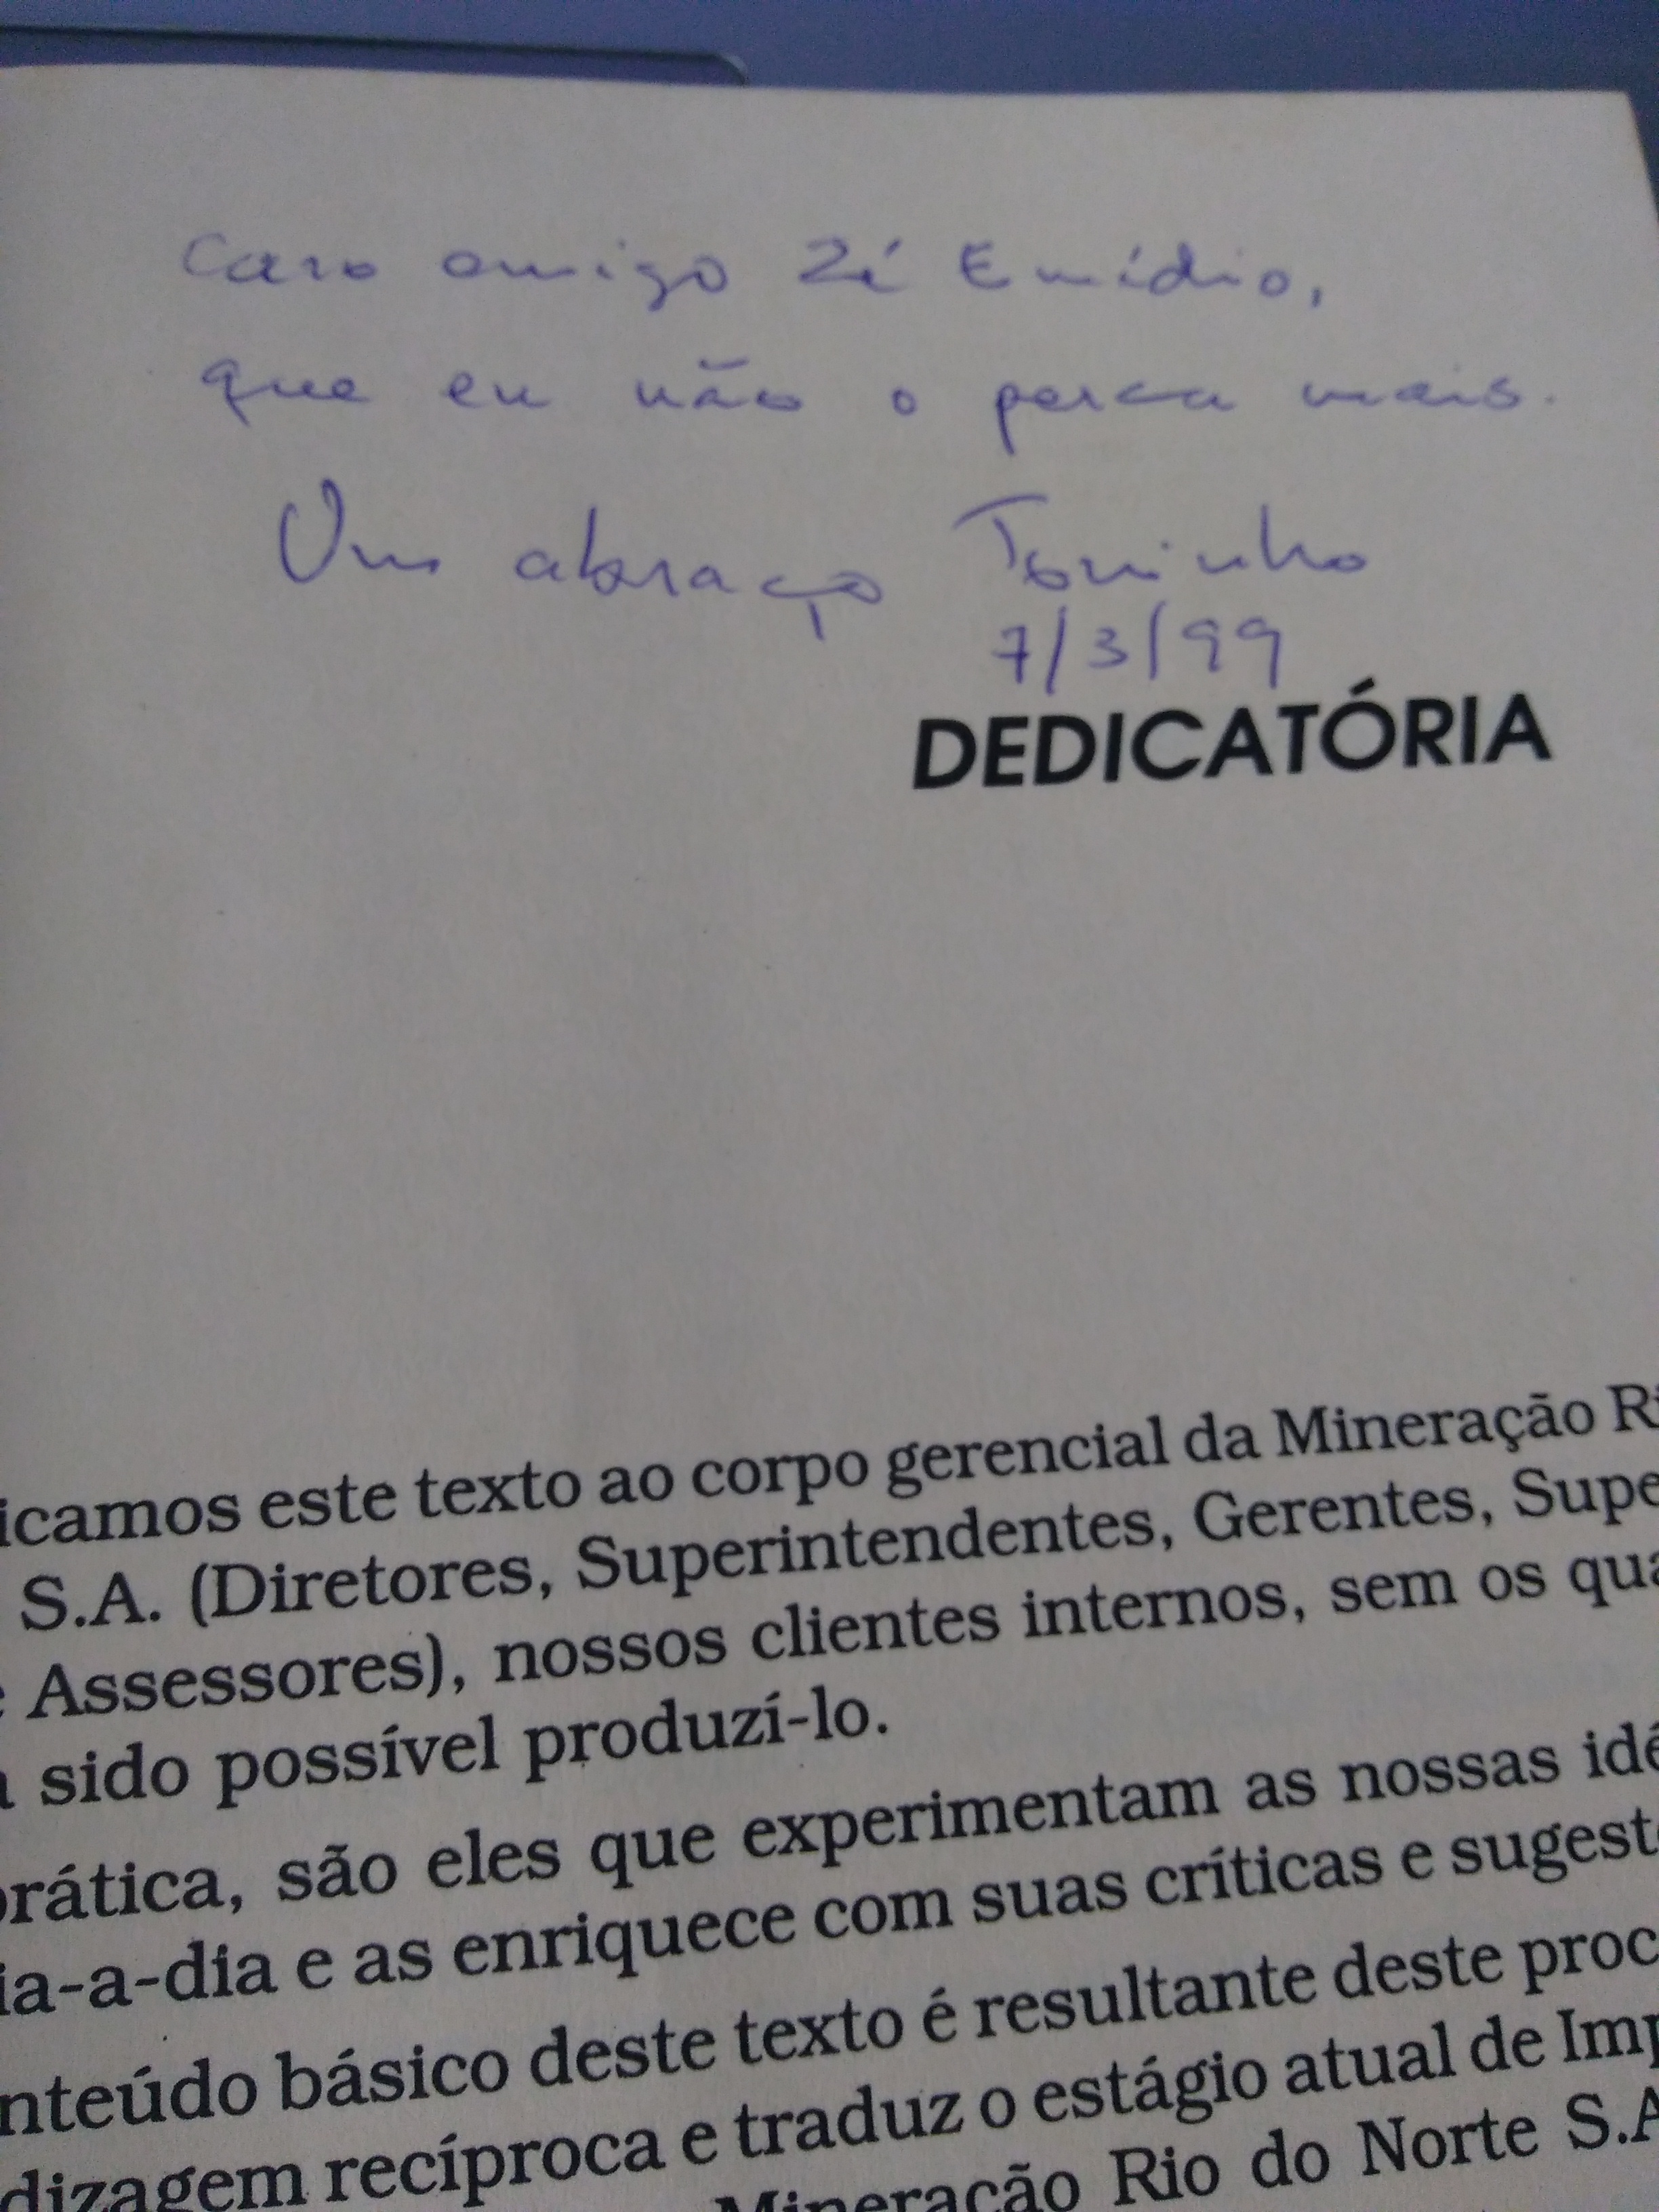 Caro amigo Zé Emídio,
que eu não o perca mais.
Um abraço Toninho
7/3/99
DEDICATÓRIA
icamos este texto ao corpo gerencial da Mineração Ri
S.A. (Diretores, Superintendentes, Gerentes, Supe
e Assessores), nossos clientes internos, sem os qua
a sido possível produzí-lo.
prática, são eles que experimentam as nossas idé
ia-a-dia e as enriquece com suas críticas e sugest
nteúdo básico deste texto é resultante deste proc
dizagem recíproca e traduz o estágio atual de Imp
Mineração Rio do Norte S.A